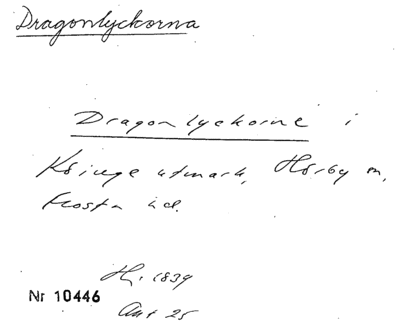 Dragonlyckorna
Dragonlyckorne i
utmark, Hörby sn,
Frosta hd.
H. 1839
Nr 10446
Akt 25